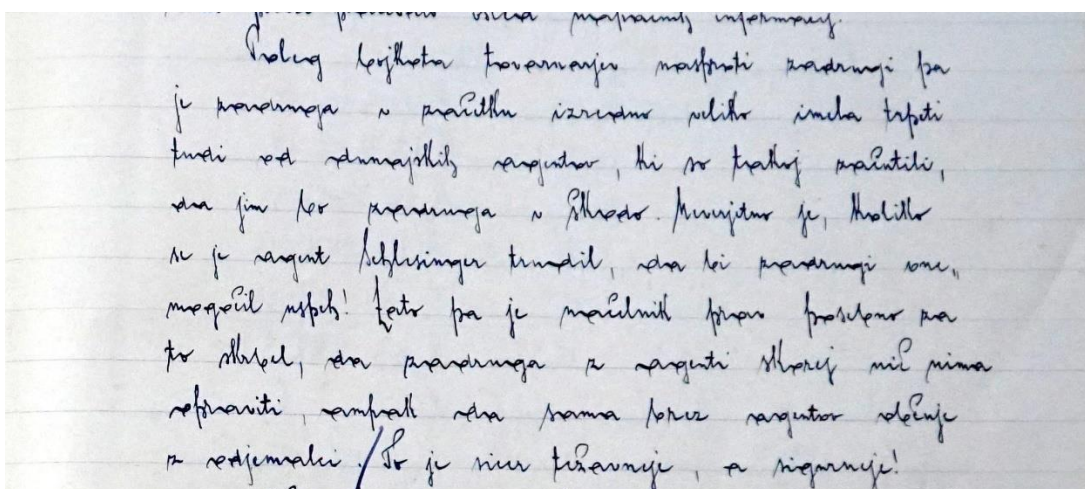 vsled napačnih informacij.
Poleg bojkota tovarnarjev nasproti zadrugi pa
je zadruga v začetku izredno veliko imela trpeti
tudi od dunajskih agentov, ki so takoj začutili,
da jim bo zadruga v škodo. Neverjetno je, koliko
se je agent Schlesinger trudil, da bi zadrugi one„
mogočil uspeh! Zato pa je načelnik prav posebno za
to skrbel, da zadruga z agenti skoraj nič nima
opraviti, ampak da sama brez agentov občuje
z odjemalci. / To je sicer težavneje, a sigurneje!